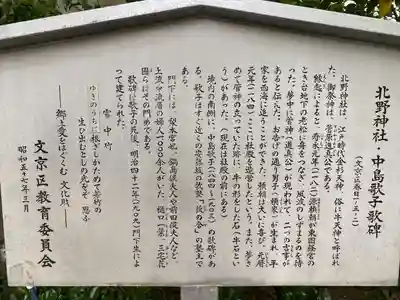 北野神社・中島歌子歌碑
(文京区春日一‐五‐二)
北野神社は、江戸時代金杉天神、俗に牛天神と呼ばれ
た。御祭神は、菅原道真公である。
縁起によると、寿永元年(一一八二)源頼朝が東国経営の
とき台地下の老松に舟をつなぎ、風波のしずまるのを待
った。夢中に菅神(道真公)が現われて、二つの吉事が
あると伝えた。お告げの通り男子(頼家)が生まれ、平
家を西海に追うことができた。頼朝は大いに喜び、元暦
元年(一一八四)ここに社殿を造営したという。また、夢さ
めて菅神の立っていた跡に、牛の形をした石(牛石とい
う)があった。(現在は社殿の前にある)
境内の南側に、中島歌子(一八四四〜一九〇三)の歌碑が
ある。歌子はすぐ近くの安藤坂の歌塾「萩の舎」の塾主で
ある。
門下には、梨本宮妃、鍋島侯夫人や前田侯夫人など
上流中流層の婦人一〇〇〇余人がいた。樋口一葉、三宅花
圃らはその門弟である。
歌碑は歌子の死後、明治四十二年(一九〇九)門下生によ
って建てられた。
雪中竹
ゆきのうちに根ざしかためて若竹の
生ひ出むとしの光をぞ思ふ
―郷土愛をはぐくむ文化財―
文京区教育委員会
昭和五十七年三月